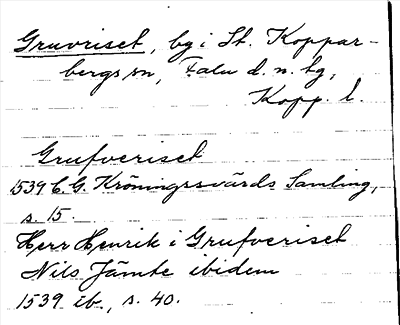 Gruvriset, by i St. Koppar-
bergs sn, Falu d. n. tg,
Kopp. l.
Grufveriset
1539 C.G. Kröningssvärds Samling,
s. 15.
Herr Henrik i Grufveriset
Nils Jämte ibidem
1539 ib., s. 40.